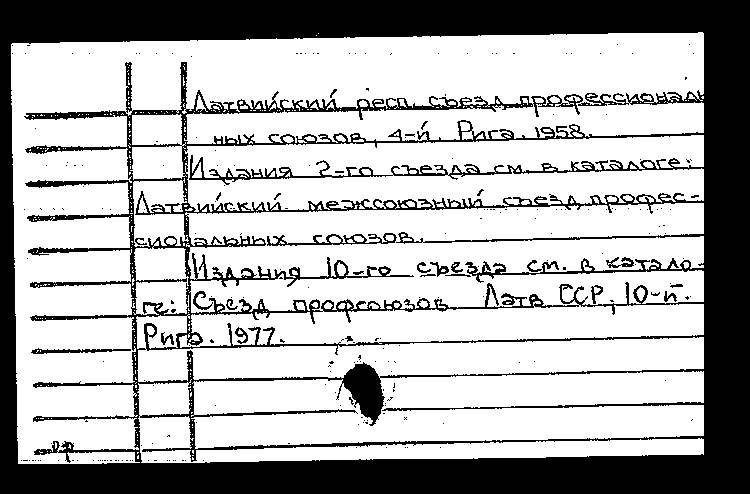 Латвийский респ. съезд профессиональ
ных союзов, 4-й. Рига. 1958.
Издания 2-го съезда см. в каталоге:
Латвийский межсоюзный съезд профес-
сиональных союзов.
Издания 10-го съезда см. в катало-
ге: Съезд профсоюзов Латв ССР, 10-й.
Рига. 1977.